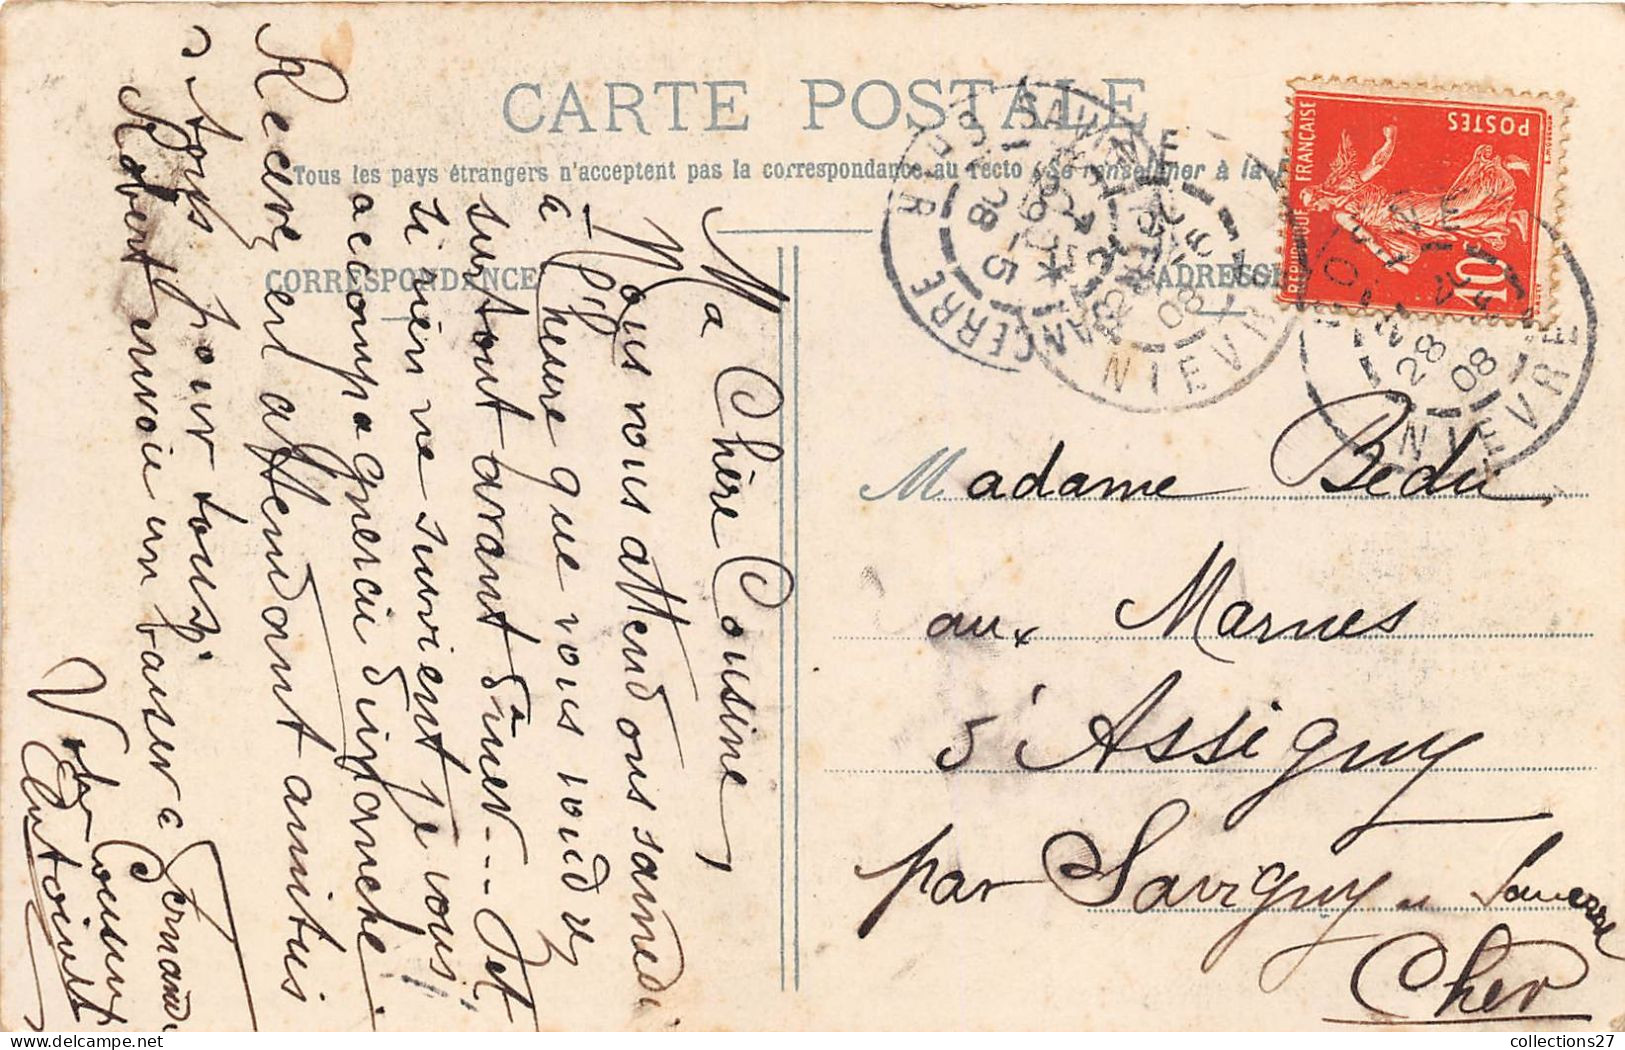 CARTE POSTALE
Tous les pays étrangers n'acceptent pas la correspondance au recto (Se renseigner à la
CORRESPONDANCE
ADRESSE
REPUBLIQUE FRANÇAISE
POSTES
10
SANCERRE
28 5
NIEVRE
28
08
NIEVRE
Ma Chère Cousine
Nous vous attendons samedi
à l'heure que vous voudrez
surtout avant dîner... Et
si rien ne survient je vous
accompagnerai dimanche.
Recevez en attendant amitiés
à tous pour tous.
Robert envoie un baiser à Fernand
Votre Cousin
Antoine
Madame Bedu
aux Marnes
d'Assigny
par Savigny en Sancerre
Cher
collections27